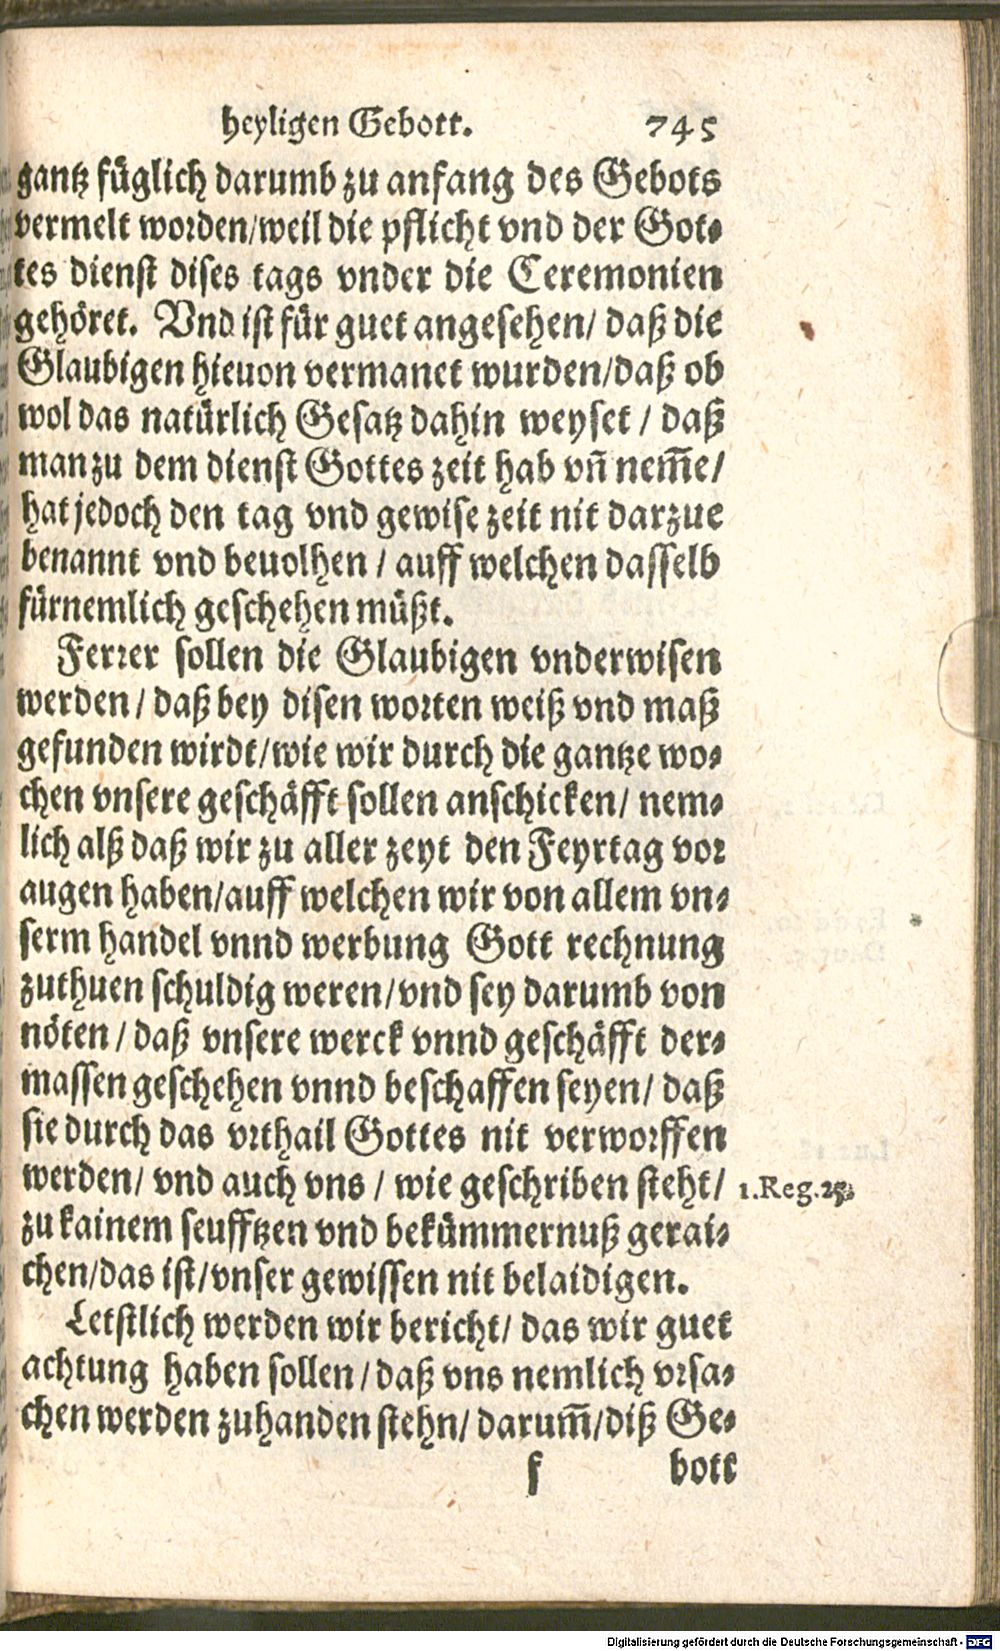 heyligen Gebott. 745
gantz füglich darumb zu anfang des Gebots
vermelt worden/weil die pflicht vnd der Got-
tes dienst dises tags vnder die Ceremonien
gehöret. Vnd ist für guet angesehen/ daß die
Glaubigen hieuon vermanet wurden/daß ob
wol das natürlich Gesatz dahin weyset / daß
man zu dem dienst Gottes zeit hab vñ nem̃e/
hat jedoch den tag vnd gewise zeit nit darzue
benannt vnd beuolhen / auff welchen dasselb
fürnemlich geschehen müßt.
Ferrer sollen die Glaubigen vnderwisen
werden/ daß bey disen worten weiß vnd maß
gefunden wirdt/wie wir durch die gantze wo-
chen vnsere geschäfft sollen anschicken/ nem-
lich alß daß wir zu aller zeyt den Feyrtag vor
augen haben/auff welchen wir von allem vn-
serm handel vnnd werbung Gott rechnung
zuthuen schuldig weren/vnd sey darumb von
nöten / daß vnsere werck vnnd geschäfft der-
massen geschehen vnnd beschaffen seyen/ daß
sie durch das vrthail Gottes nit verworffen
werden/ vnd auch vns / wie geschriben steht/ 1.Reg.25.
zu kainem seufftzen vnd bekümmernuß gerai-
chen/das ist/vnser gewissen nit belaidigen.
Letstlich werden wir bericht/ das wir guet
achtung haben sollen/daß vns nemlich vrsa-
chen werden zuhanden stehn/ darum̃/diß Ge-
f bott
Digitalisierung gefördert durch die Deutsche Forschungsgemeinschaft - DFG